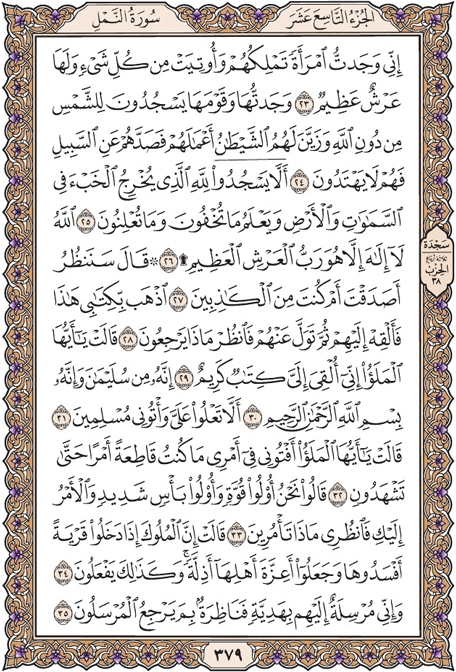 الجزء التاسع عشر
سورة النمل
إِنِّي وَجَدتُّ ٱمْرَأَةً تَمْلِكُهُمْ وَأُوتِيَتْ مِن كُلِّ شَيْءٍ وَلَهَا
عَرْشٌ عَظِيمٌ ٢٣ وَجَدتُّهَا وَقَوْمَهَا يَسْجُدُونَ لِلشَّمْسِ
مِن دُونِ ٱللَّهِ وَزَيَّنَ لَهُمُ ٱلشَّيْطَٰنُ أَعْمَٰلَهُمْ فَصَدَّهُمْ عَنِ ٱلسَّبِيلِ
فَهُمْ لَا يَهْتَدُونَ ٢٤ أَلَّا يَسْجُدُوا۟ لِلَّهِ ٱلَّذِي يُخْرِجُ ٱلْخَبْءَ فِي
ٱلسَّمَٰوَٰتِ وَٱلْأَرْضِ وَيَعْلَمُ مَا تُخْفُونَ وَمَا تُعْلِنُونَ ٢٥ ٱللَّهُ
لَآ إِلَٰهَ إِلَّا هُوَ رَبُّ ٱلْعَرْشِ ٱلْعَظِيمِ ۩ ٢٦ ۞ قَالَ سَنَنظُرُ
أَصَدَقْتَ أَمْ كُنتَ مِنَ ٱلْكَٰذِبِينَ ٢٧ ٱذْهَب بِّكِتَٰبِي هَٰذَا
فَأَلْقِهْ إِلَيْهِمْ ثُمَّ تَوَلَّ عَنْهُمْ فَٱنظُرْ مَاذَا يَرْجِعُونَ ٢٨ قَالَتْ يَٰٓأَيُّهَا
ٱلْمَلَؤُا۟ إِنِّيٓ أُلْقِيَ إِلَيَّ كِتَٰبٌ كَرِيمٌ ٢٩ إِنَّهُۥ مِن سُلَيْمَٰنَ وَإِنَّهُۥ
بِسْمِ ٱللَّهِ ٱلرَّحْمَٰنِ ٱلرَّحِيمِ ٣٠ أَلَّا تَعْلُوا۟ عَلَيَّ وَأْتُونِي مُسْلِمِينَ ٣١
قَالَتْ يَٰٓأَيُّهَا ٱلْمَلَؤُا۟ أَفْتُونِي فِيٓ أَمْرِي مَا كُنتُ قَاطِعَةً أَمْرًا حَتَّىٰ
تَشْهَدُونِ ٣٢ قَالُوا۟ نَحْنُ أُو۟لُوا۟ قُوَّةٍ وَأُو۟لُوا۟ بَأْسٍ شَدِيدٍ وَٱلْأَمْرُ
إِلَيْكِ فَٱنظُرِي مَاذَا تَأْمُرِينَ ٣٣ قَالَتْ إِنَّ ٱلْمُلُوكَ إِذَا دَخَلُوا۟ قَرْيَةً
أَفْسَدُوهَا وَجَعَلُوٓا۟ أَعِزَّةَ أَهْلِهَآ أَذِلَّةً ۖ وَكَذَٰلِكَ يَفْعَلُونَ ٣٤
وَإِنِّي مُرْسِلَةٌ إِلَيْهِم بِهَدِيَّةٍ فَنَاظِرَةٌۢ بِمَ يَرْجِعُ ٱلْمُرْسَلُونَ ٣٥
سَجْدَة
ثلاثة أرباع
الحزب
٣٨
٣٧٩